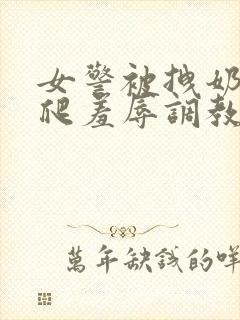 女警被拽奶
爬羞辱調教
萬年缺錢的咩